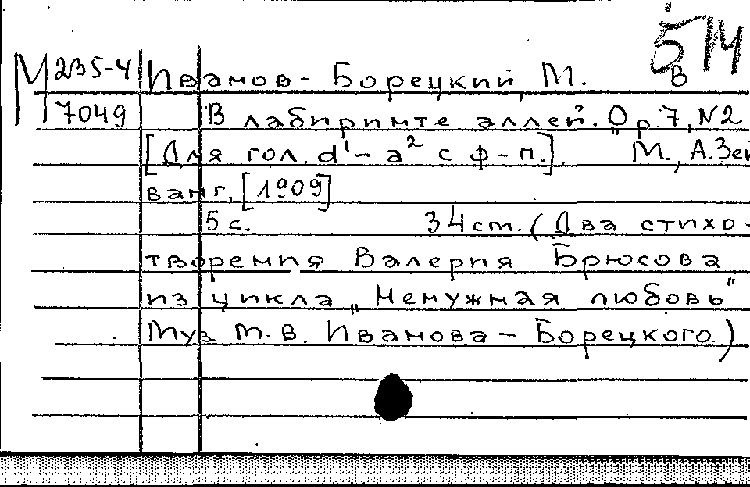 514
М 235-4 Иванов-Борецкий, М. В
7049 В лабиринте аллей. Ор. 7, N2
[Для гол. d¹-a² с ф-п.]. М., А. Зей
ванг, [1909]
5 с. 34 см. (Два стихо-
творения Валерия Брюсова
из цикла „Ненужная любовь"
Муз М. В. Иванова-Борецкого)